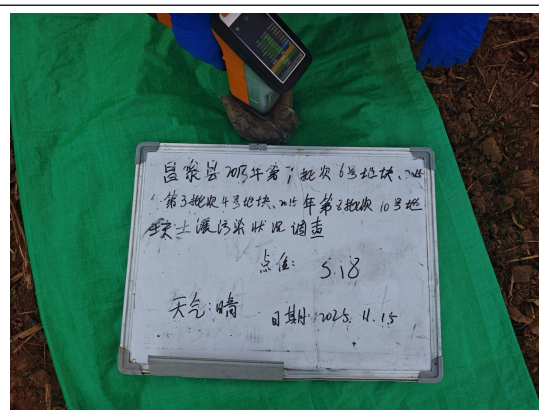 昌黎县2015年第7批次6号地块、2015
年第3批次4号地块、2015年第2批次10号地
块土壤污染状况调查
点位: S18
天气:晴 日期:2025.11.15